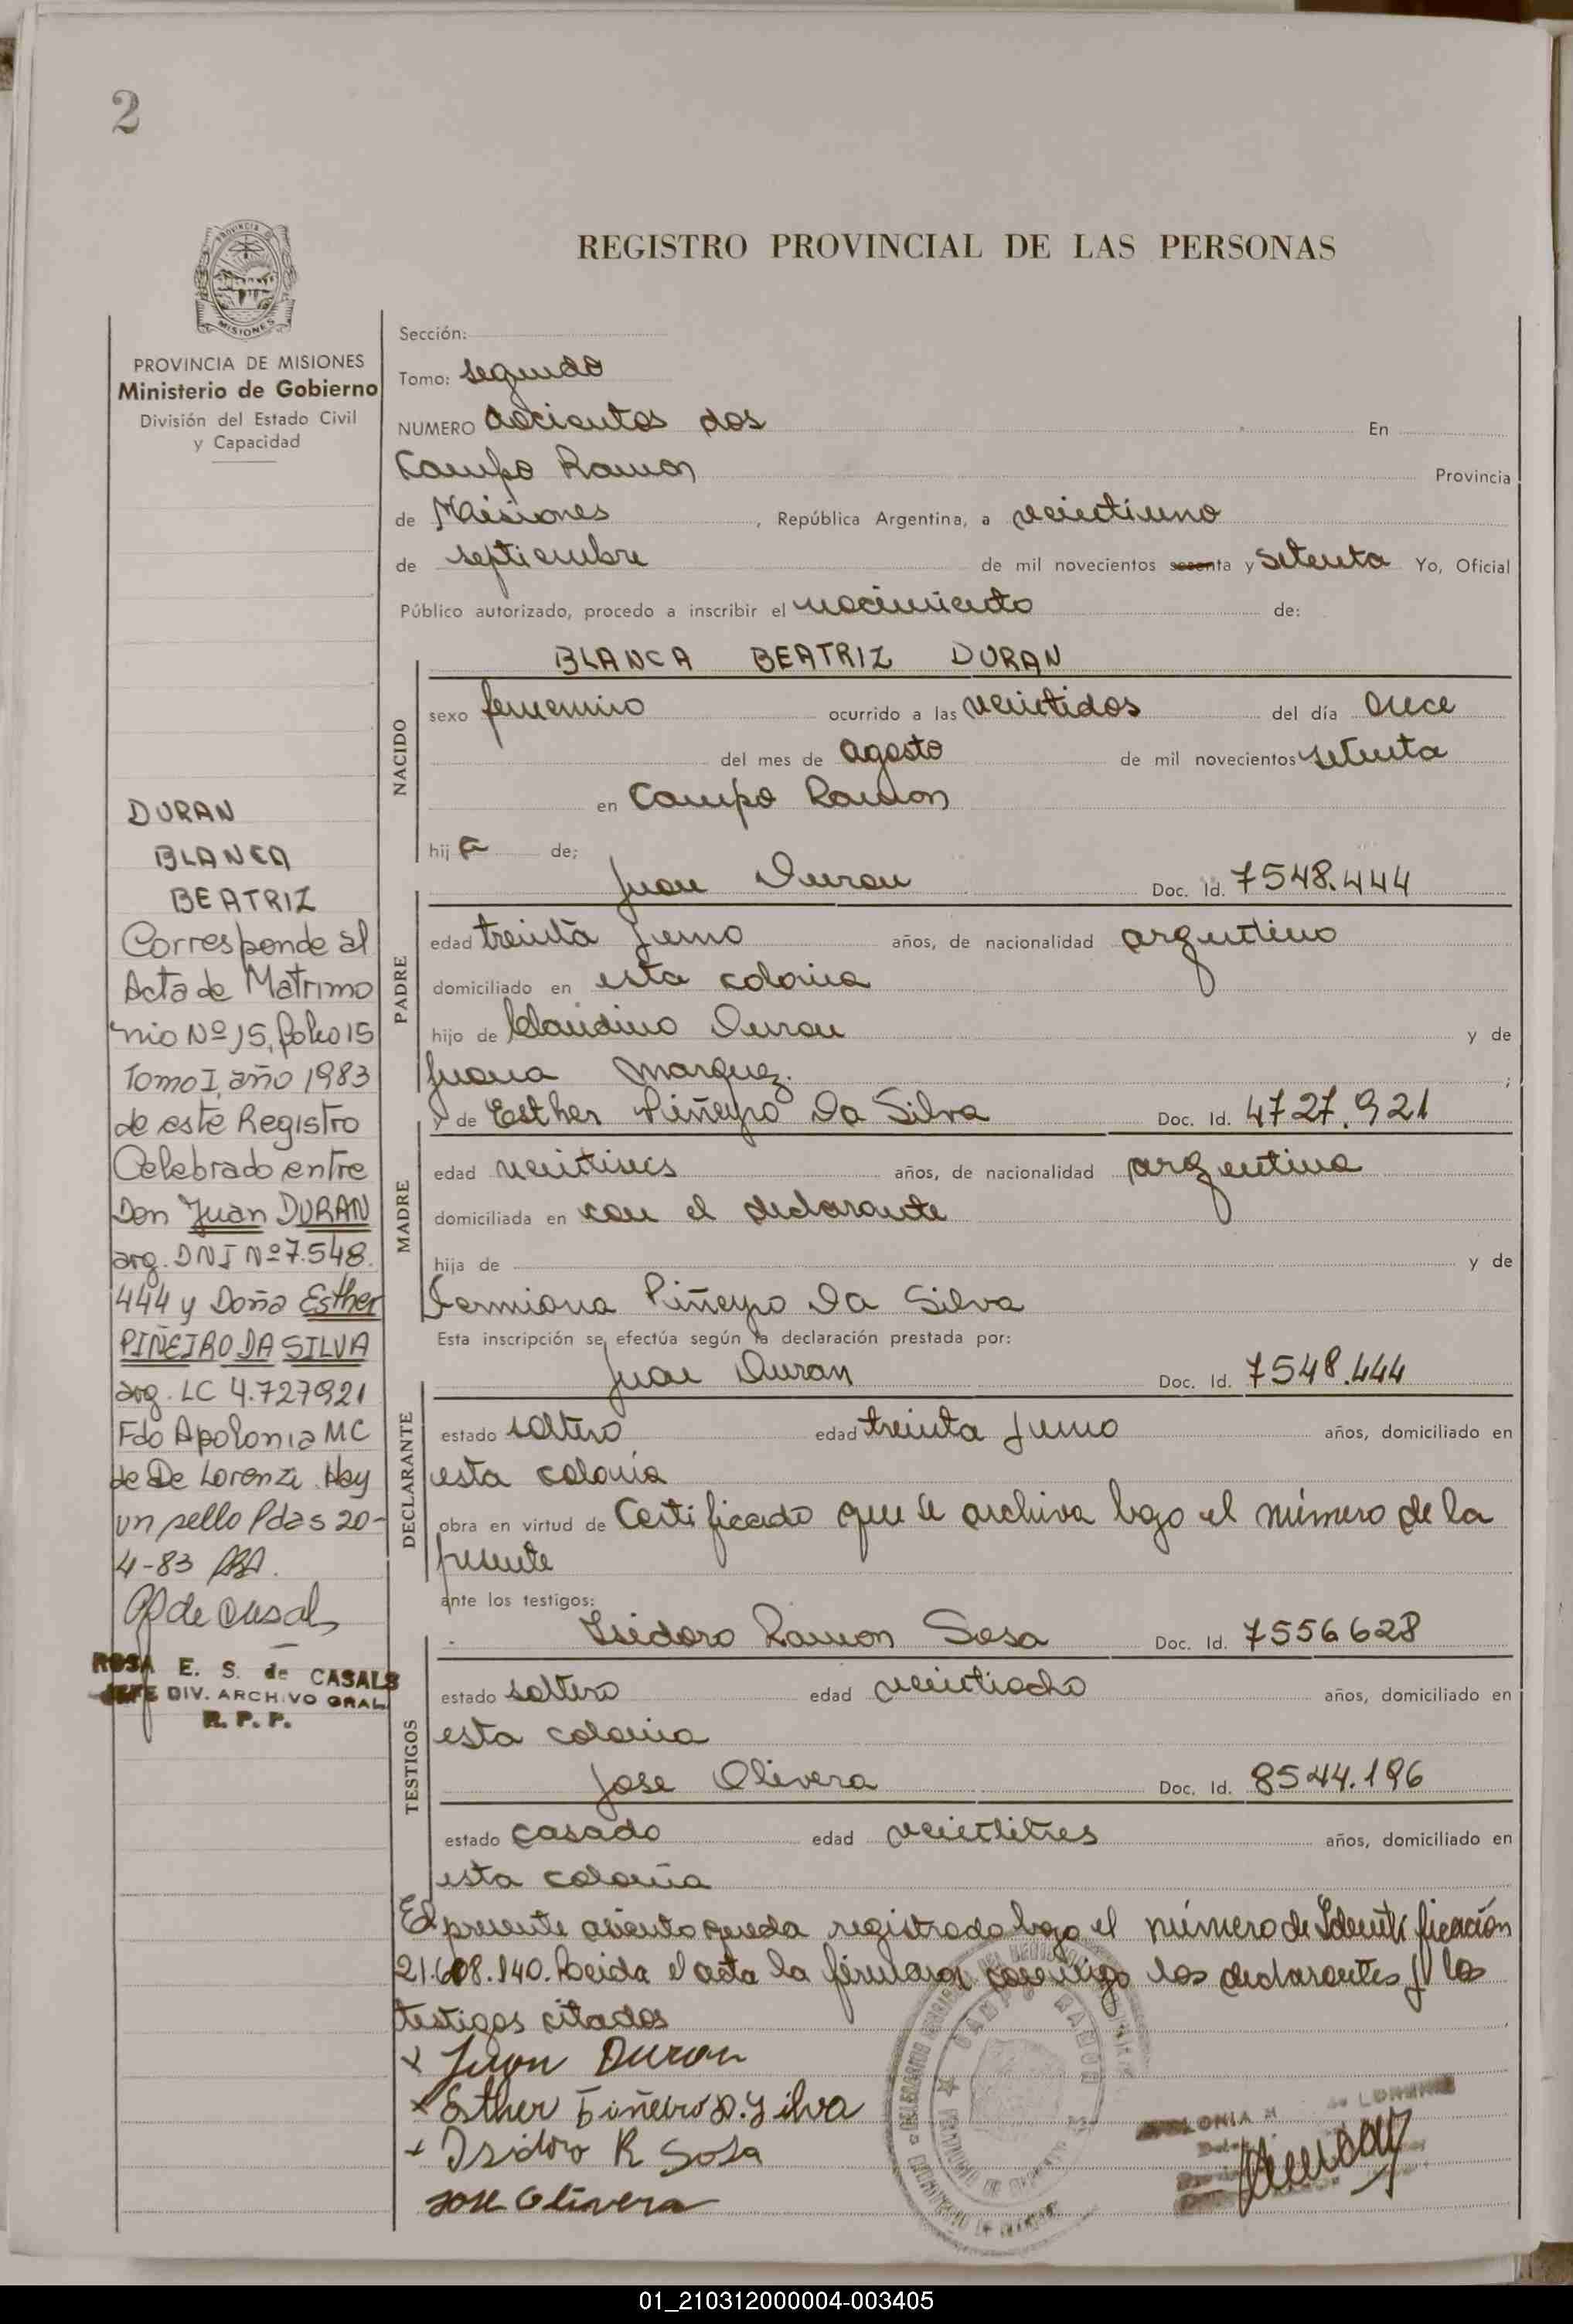 2
REGISTRO PROVINCIAL DE LAS PERSONAS
PROVINCIA DE MISIONES
Ministerio de Gobierno
División del Estado Civil
y Capacidad
DURAN
BLANCA
BEATRIZ
Corresponde al
Acta de Matrimo
nio Nº 15, folio 15
Tomo I, año 1983
de este Registro
Celebrado entre
Don Juan DURAN
arg. DNI Nº 7.548.
444 y Doña Esther
PIÑEIRO DA SILVA
arg. LC 4.727921
Fdo Apolonia MC
de De Lorenzi. Hay
un sello Pdas 20-
4-83
ROSA E. S. de CASALS
JEFE DIV. ARCHIVO GRAL
R. P. P.
Sección:
Tomo: segundo
NUMERO docientos dos En
Campo Ramon Provincia
de Misiones, República Argentina, a veintiuno
de septiembre de mil novecientos sesenta y setenta Yo, Oficial
Público autorizado, procedo a inscribir el nacimiento de:
BLANCA BEATRIZ DURAN
NACIDO
sexo femenino ocurrido a las veintidos del día once
del mes de agosto de mil novecientos setenta
en Campo Ramon
hija de;
Juan Duran Doc. Id. 7548.444
PADRE
edad treinta y uno años, de nacionalidad argentino
domiciliado en esta colonia
hijo de Claudino Duran y de
Juana Marquez.;
y de Esther Piñeyro Da Silva Doc. Id. 4727.921
MADRE
edad años, de nacionalidad argentina
domiciliada en con el declarante
hija de y de
Piñeyro Da Silva
Esta inscripción se efectúa según la declaración prestada por:
Juan Duran Doc. Id. 7548.444
DECLARANTE
estado soltero edad treinta y uno años, domiciliado en
esta colonia
obra en virtud de Certificado que se archiva bajo el número de la
presente
ante los testigos:
Isidoro Ramon Sosa Doc. Id. 7556628
TESTIGOS
estado soltero edad veintiocho años, domiciliado en
esta colonia
Jose Olivera Doc. Id. 8544.196
estado casado edad veintitres años, domiciliado en
esta colonia
El presente asiento queda registrado bajo el número de Identificación
21.608.140. Leida el acta la firman conmigo los declarantes y los
testigos citados
x Juan Duran
x Esther Piñeiro D. Silva
x Isidoro R Sosa
Jose Olivera
01_210312000004-003405